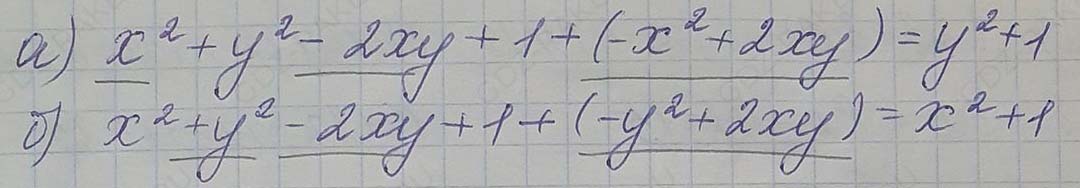 а) x² + y² - 2xy + 1 + (-x² + 2xy) = y² + 1
б) x² + y² - 2xy + 1 + (-y² + 2xy) = x² + 1